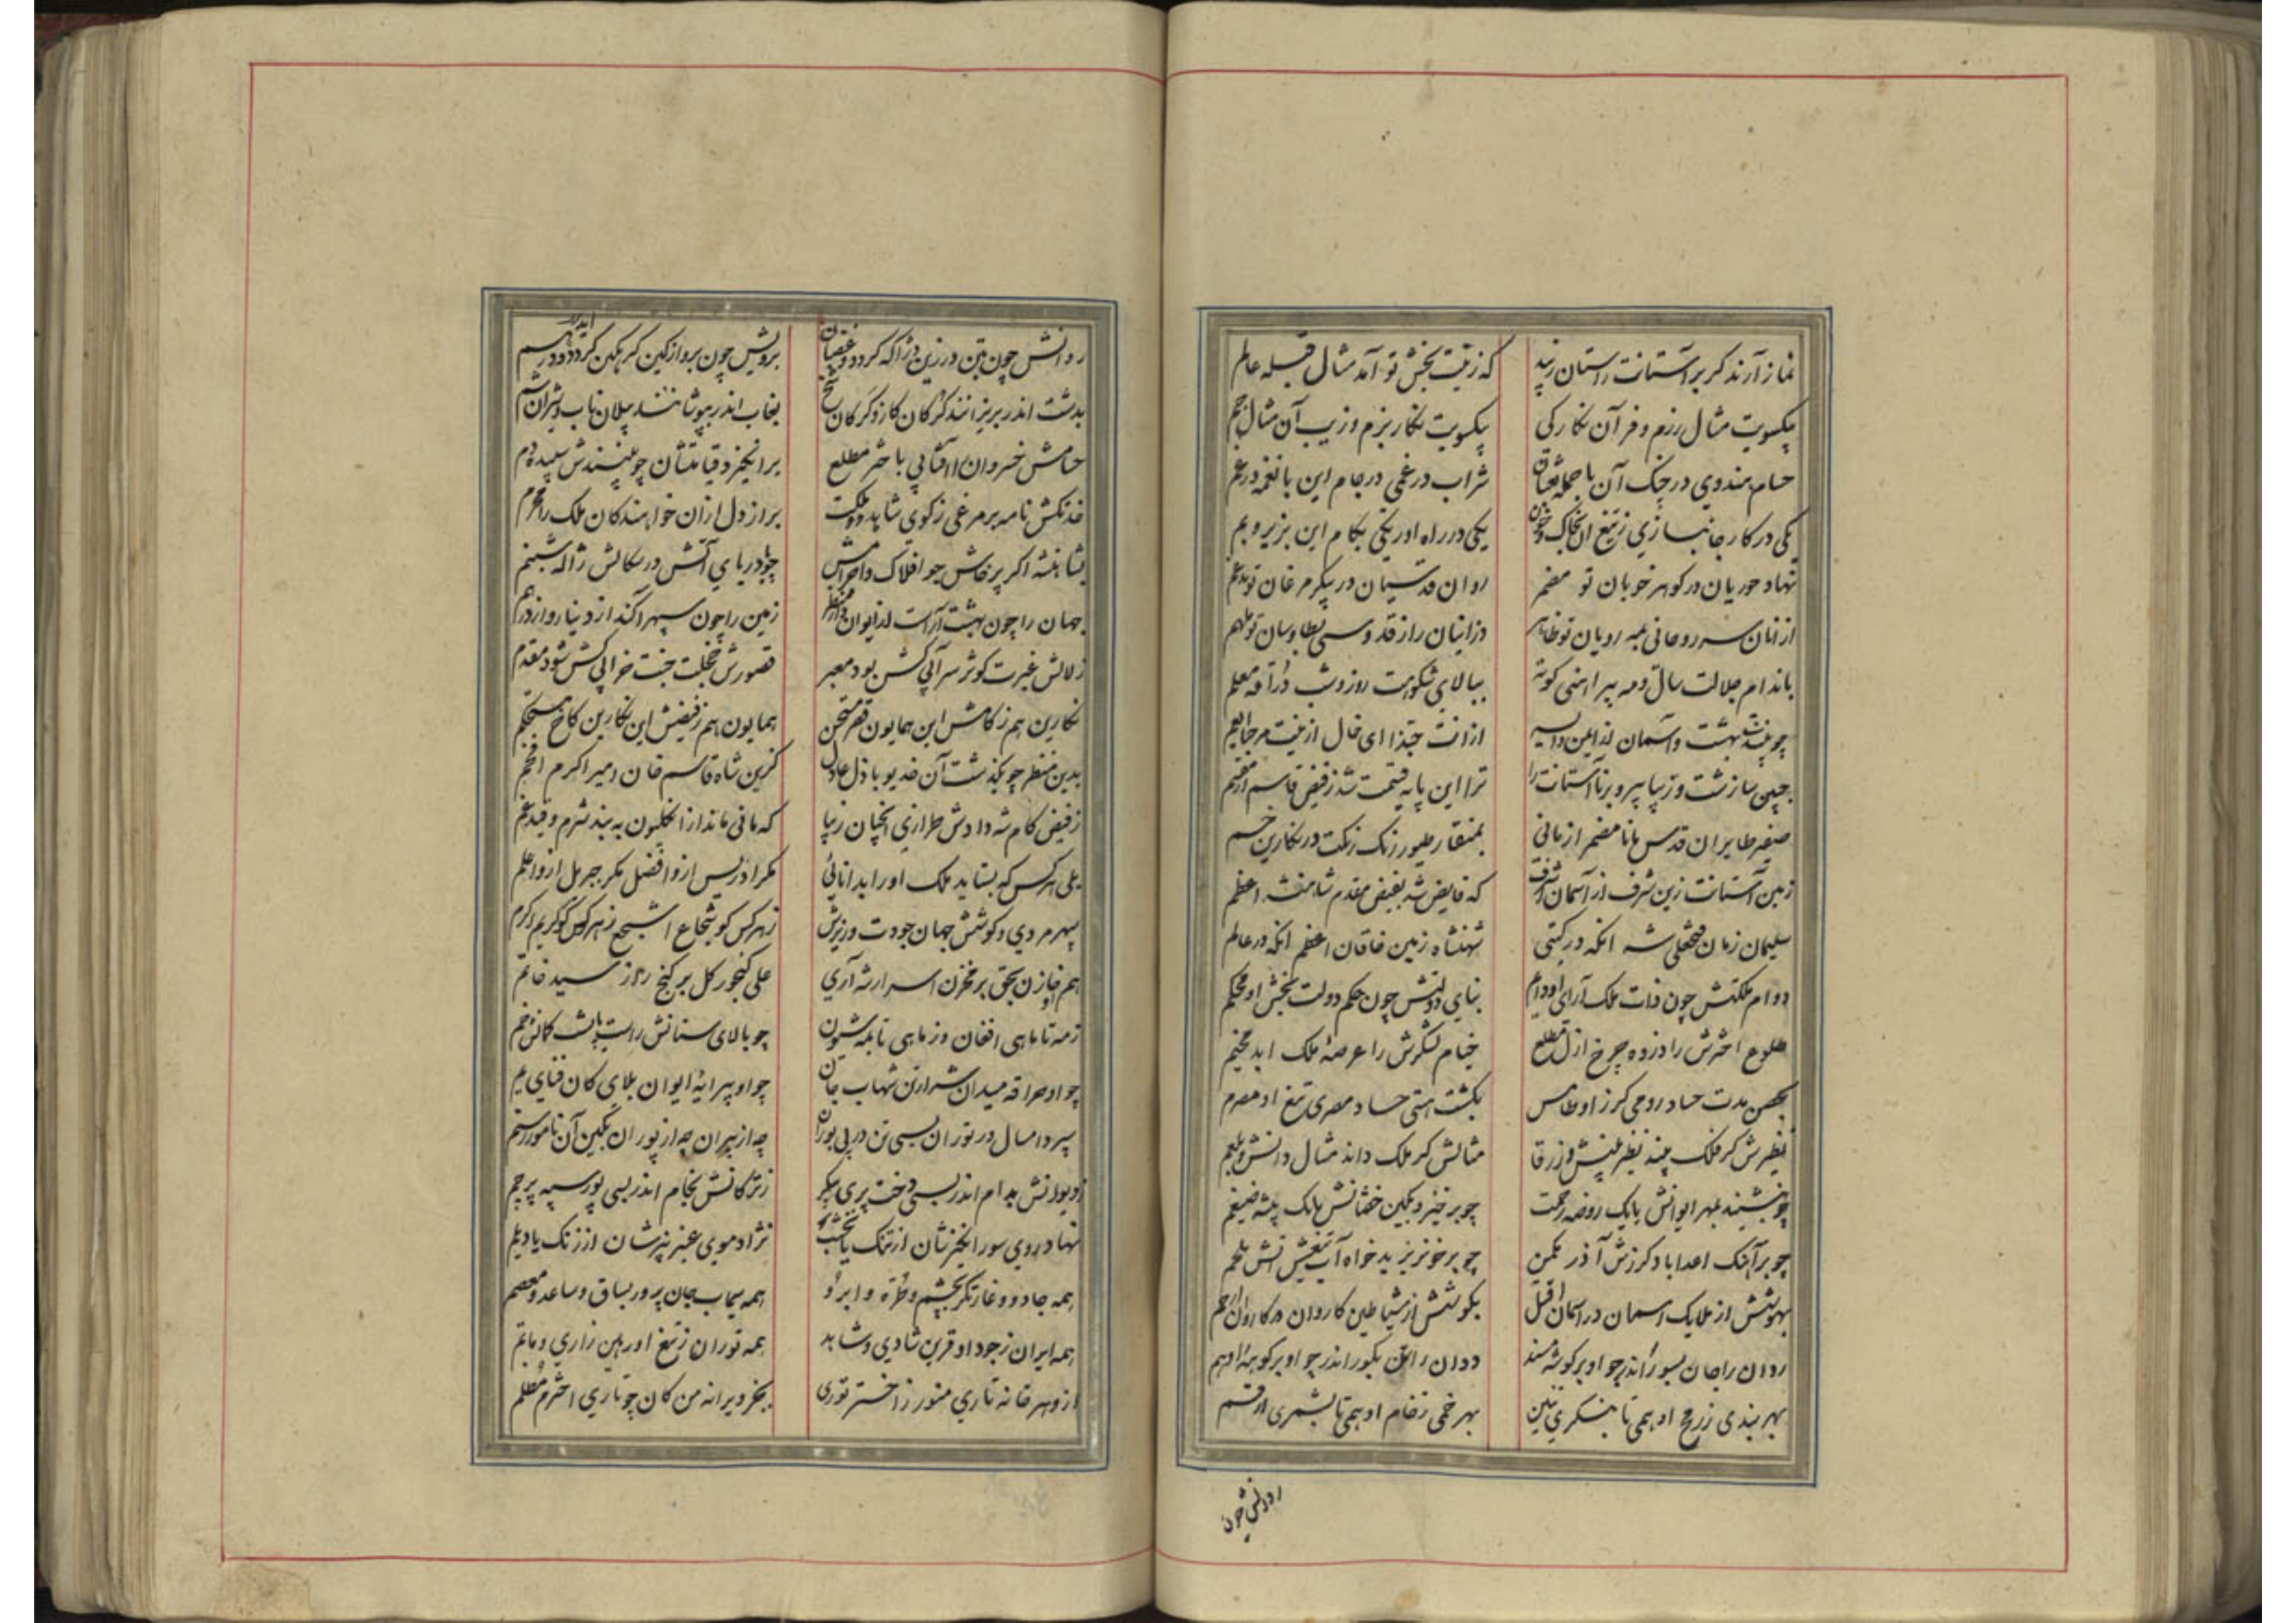 نماز آرند کر بر آستانت راستان زیبد
که زینت بخش تو آمد مثال قبله عالم
یکسویت مثال رزم و فر آن نکار کی
یکسویت نکار بزم و زیب آن مثال جم
حسام هندوی در چنک آن با جمله
شراب درغمی در جام این با نغمه درغم
یکی در کار جانبازی ز تیغ آن بخاک و خون
یکی در راه اور یکی بکام این بزیر و بم
نهاد حوریان در کوهر خوبان تو مضمر
روان قدسیان در پیکر مرغان تو مدغم
از انان سر روحانی بمه رویان تو ظاهر
وزانیان راز قدوسی بطاوسان تو ملهم
باندام جلالت سال ومه پیراهنی کوته
ببالای شکوهت روز وشب
بهشت و آسمان
ازانت حبذا ای خال ازینت مرحبا
جبین سا زشت و زیبا پیر و برنا آستانت را
ترا این پایه قیمت شد ز فیض قاسم
صفیر طایران قدس مانا مضمر از مانی
بمنقار طیور رنک رنکت در نکارین خم
زمین آستانت زین شرف از آسمان اشرف
که فایض شد بفیض مقدم شاهنشه اعظم
سلیمان زمان فتحعلی شه انکه در کیتی
شهنشاه زمین خاقان اعظم انکه در عالم
دوام ملکتش چون ذات ملک آرای او دایم
بنای دولتش چون حکم دولت بخش او محکم
طلوع اخترش را در زده چرخ ازل مطلع
خیام لشکرش را عرصهٔ ملک ابد مخیم
مدت حساد رومی کرز او طامس
بکشت هستی حساد مصری تیغ او مصرم
نظیرش کر فلک بیند نظیر بینش و زرقا
مثالش کر ملک داند مثال دانش و بلعم
چو بنشیند بمهر ایوانش با یک روضه رحمت
چو برخیزد بکین خفتانش با یک بیشه ضیغم
چو بر آهنک اعدا باد کرزش آذر
چو بر خونریز بدخواه آب تیغش آتش
بهوشش از ملایک اسمان در اسمان
بکوشش از شیاطین کاروان در کاروان
روان را جان بسور اندر چو او بر کوشه مسند
ددان را تن بکور اندر چو او بر کوهه ادهم
بهر بندی ز رمح او همی تا بنکری
بهر خمی ز خام او همی تا بشمری
روانش چون
روانش چون بتن
برویش چون
بدشت اندر
بخاب اندر بپوشانند پیلان ناب و شیران
حسامش خسروان را آفتابی باختر مطلع
برانکیزد قیامتشان چو بینندش سپیده دم
خدنکش نامه بر مرغی ز کوی شاهد دولت
براز دل ازان خواهندکان ملک را محرم
اکر پرخاش جو افلاک و
دریای آتش در سکالش ژاله و شبنم
جهان را چون بهشت آراست از ایوان
زمین را چون سپهر آکند از دینار و از درهم
زلالش غیرت کوثر سرآبی کش بود معبر
قصورش خجلت جنت خرابی کش شود مقدم
نکارین هم ز کامش این همایون قصر
همایون هم ز فیضش این نکارین کاخ مستحکم
بدین منظر چو بکذشت آن خدیو باذل عادل
کزین شاه قاسم خان امیر اکرم افخم
ز فیض کام شه دادش طرازی انچنان زیبا
که مانی ماند از انکلیون به بند شرم و قید غم
بلی هر کس که بستاید ملک او را بدانائی
مکر ادریس ازو افضل مکر جبریل ازو اعلم
سپهر مردی و کوشش جهان جودت و ورزش
ز هر کس کو شجاع اشجع ز هر کس کو کریم اکرم
هم او خازن بحق بر مخزن اسرار شه آری
علی کنجور کل بر کنج راز سید خاتم
ز مه تا ماهی افغان وز ماهی تا بمه شیون
چو بالای سنانش راست پشت کمانش خم
چو او حراقه میدان شرار تن شهاب جان
چو او پیرایهٔ ایوان بلای کان فنای یم
سپرد امسال در توران بسی تن در پی بوران
چه از پیران چه از پوران بکین آن نامور رستم
بدام اندر بسی دخت پری پیکر
ز ترکانش بخام اندر بسی پور سیه پرچم
نهاد روی سور انکیزشان از تنک یا نخشب
نژاد موی عنبر بیزشان از زنک یا دیلم
همه جادو و غارتکر بچشم و طره و ابرو
همه سیماب جان پرور بساق و ساعد و معصم
همه ایران ز جود او قرین شادی و شاهد
همه توران ز تیغ او رهین زاری و ماتم
ازو هر خانه تاری منور ز اختر توری
بجز ویرانه من کان چو تاری اختر مظلم